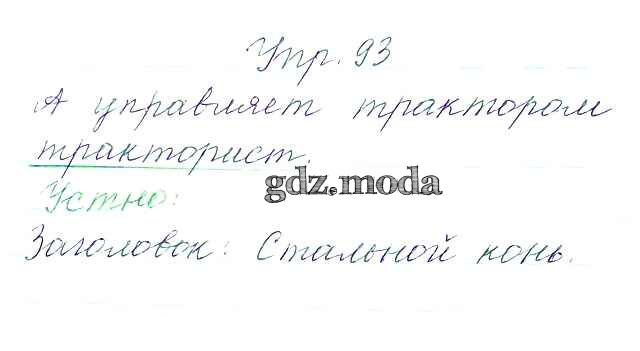 Упр. 93
А управляет трактором
тракторист.
Устно:
gdz.moda
Заголовок: Стальной конь.